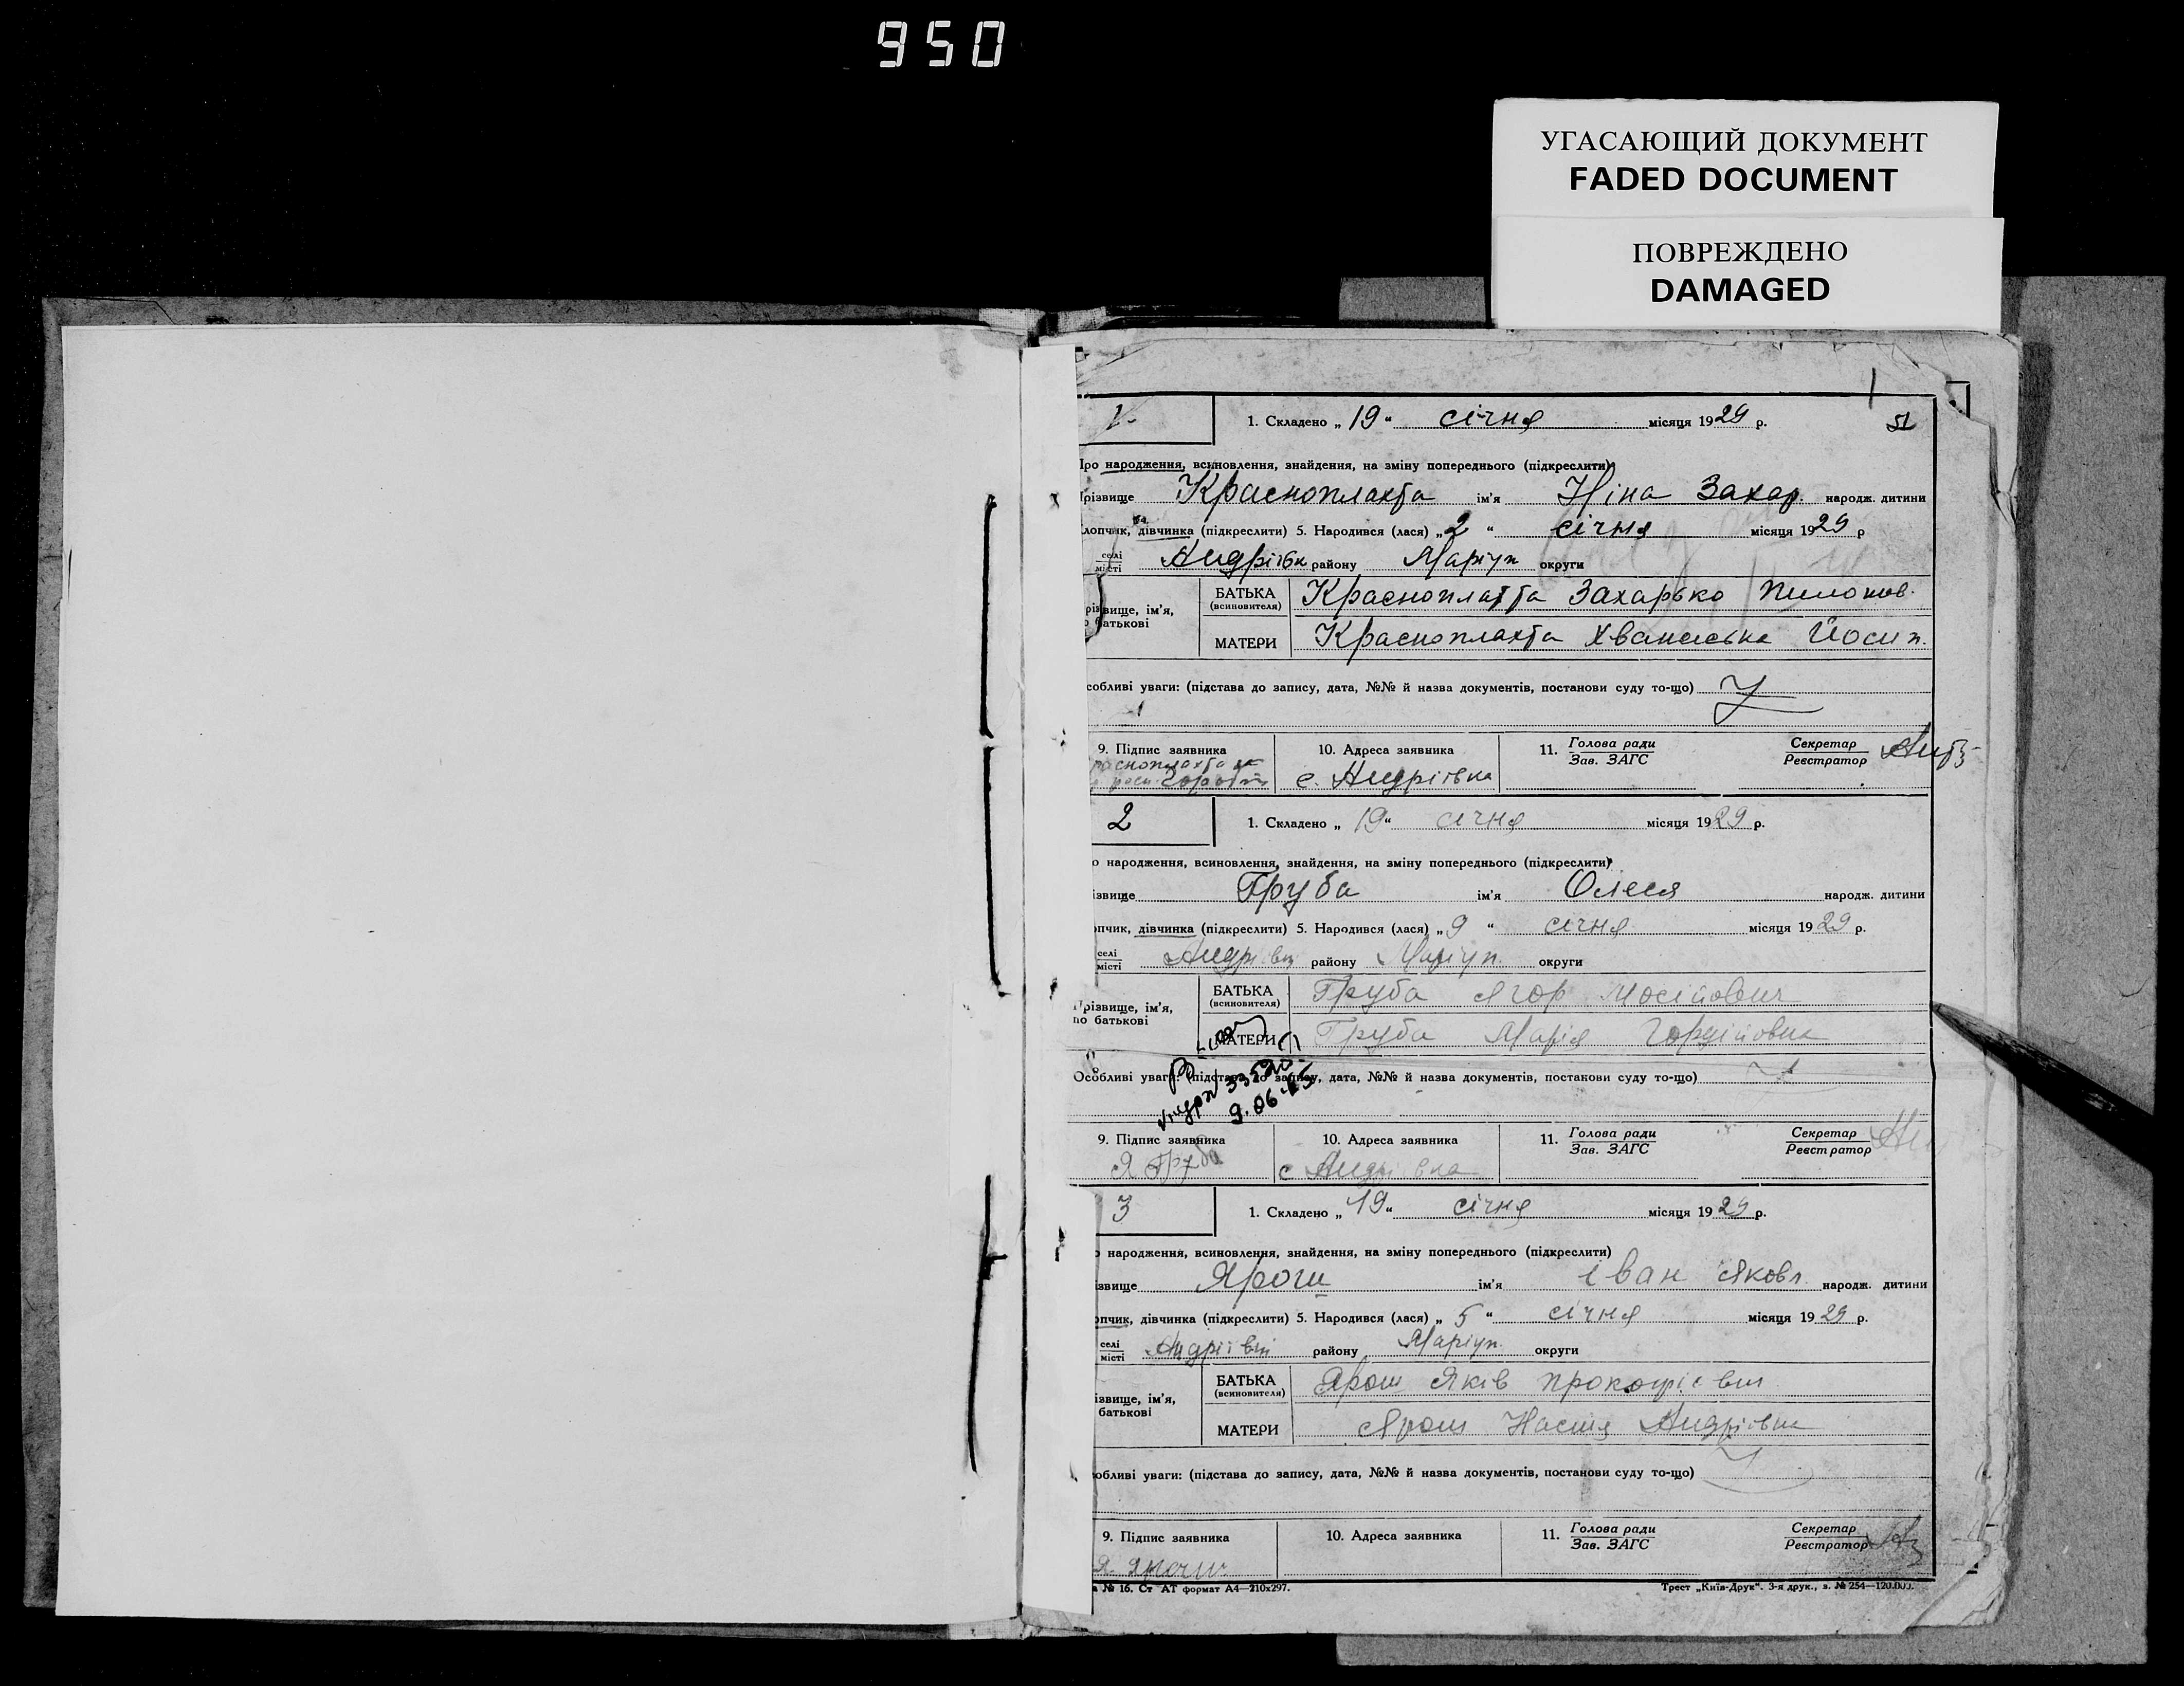 950
УГАСАЮЩИЙ ДОКУМЕНТ
FADED DOCUMENT
ПОВРЕЖДЕНО
DAMAGED
1. Складено „ 19 “ січня місяця 1929 р. 51
Про народження, всиновлення, знайдення, на зміну попереднього (підкреслити)
Прізвище Красноплахта ім'я Ніна Захар. народж. дитини
хлопчик, дівчинка (підкреслити) 5. Народився (лася) „ 2 “ січня місяця 1929 р
селі
місті Андрівки району Маріуп округи
БАТЬКА
(всиновителя) Красноплахта Захарько Пилопов.
різвище, ім'я,
батькові
МАТЕРИ Красноплахта Хванаська Йосип.
собливі уваги: (підстава до запису, дата, №№ й назва документів, постанови суду то-що)
9. Підпис заявника 10. Адреса заявника 11. Голова ради Секретар
Зав. ЗАГС Реєстратор
расноплахта
с. Андріївка
2 1. Складено „ 19 “ січня місяця 1929 р.
о народження, всиновлення, знайдення, на зміну попереднього (підкреслити)
ізвище Груба ім'я Олеся народж. дитини
пчик, дівчинка (підкреслити) 5. Народився (лася) „ 9 “ січня місяця 1929 р.
селі
місті Андрівці району Маріуп. округи
БАТЬКА
(всиновителя) Груба Ягор Мосійович
Прізвище, ім'я,
по батькові
МАТЕРИ Груба Марія Гордійовна
Особливі уваги: (підстава до запису, дата, №№ й назва документів, постанови суду то-що)
9.06.45
9. Підпис заявника 10. Адреса заявника 11. Голова ради Секретар
Зав. ЗАГС Реєстратор
Я Груба с Андріївка
3 1. Складено „ 19 “ січня місяця 1929 р.
о народження, всиновлення, знайдення, на зміну попереднього (підкреслити)
ізвище Ярош ім'я Іван Яковл. народж. дитини
опчик, дівчинка (підкреслити) 5. Народився (лася) „ 5 “ січня місяця 1929 р.
селі
місті Андріівці району Маріуп. округи
БАТЬКА
(всиновителя) Ярош Яків Прокофієвич
ізвище, ім'я,
батькові
МАТЕРИ Ярош Настя Андріївна
обливі уваги: (підстава до запису, дата, №№ й назва документів, постанови суду то-що)
9. Підпис заявника 10. Адреса заявника 11. Голова ради Секретар
Зав. ЗАГС Реєстратор
Я. Ярош
а № 16. Ст АТ формат А4—210x297. Трест „Київ-Друк“. 3-я друк., з. № 254—120.000.